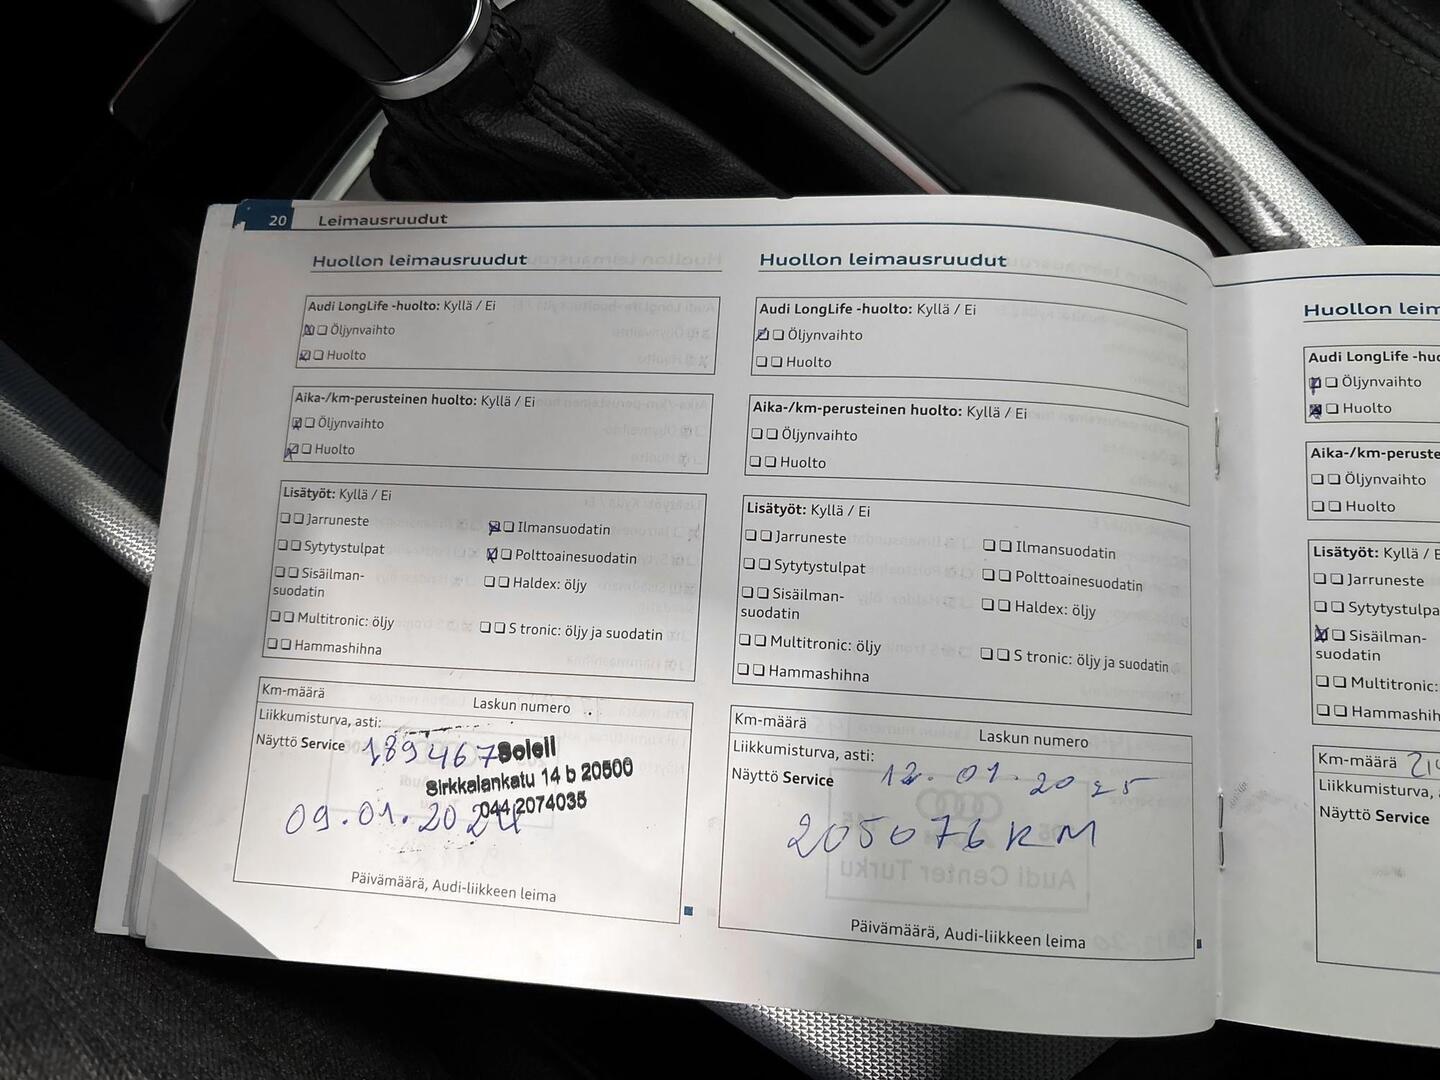 20 Leimausruudut
Huollon leimausruudut
Audi LongLife -huolto: Kyllä / Ei
Öljynvaihto
Huolto
Aika-/km-perusteinen huolto: Kyllä / Ei
Öljynvaihto
Huolto
Lisätyöt: Kyllä / Ei
Jarruneste
Ilmansuodatin
Sytytystulpat
Polttoainesuodatin
Sisäilman-
suodatin
Haldex: öljy
Multitronic: öljy
S tronic: öljy ja suodatin
Hammashihna
Km-määrä
Laskun numero
Liikkumisturva, asti:
Näyttö Service 189467
Soleil
Sirkkalankatu 14 b 20500
044 2074035
09.01.2024
Päivämäärä, Audi-liikkeen leima
Huollon leimausruudut
Audi LongLife -huolto: Kyllä / Ei
Öljynvaihto
Huolto
Aika-/km-perusteinen huolto: Kyllä / Ei
Öljynvaihto
Huolto
Lisätyöt: Kyllä / Ei
Jarruneste
Ilmansuodatin
Sytytystulpat
Polttoainesuodatin
Sisäilman-
suodatin
Haldex: öljy
Multitronic: öljy
S tronic: öljy ja suodatin
Hammashihna
Km-määrä
Laskun numero
Liikkumisturva, asti:
Näyttö Service
12.01.2025
205076 KM
Päivämäärä, Audi-liikkeen leima
Huollon leim
Audi LongLife -huo
Öljynvaihto
Huolto
Aika-/km-peruste
Öljynvaihto
Huolto
Lisätyöt: Kyllä / E
Jarruneste
Sytytystulpa
Sisäilman-
suodatin
Multitronic:
Hammashih
Km-määrä
Liikkumisturva,
Näyttö Service